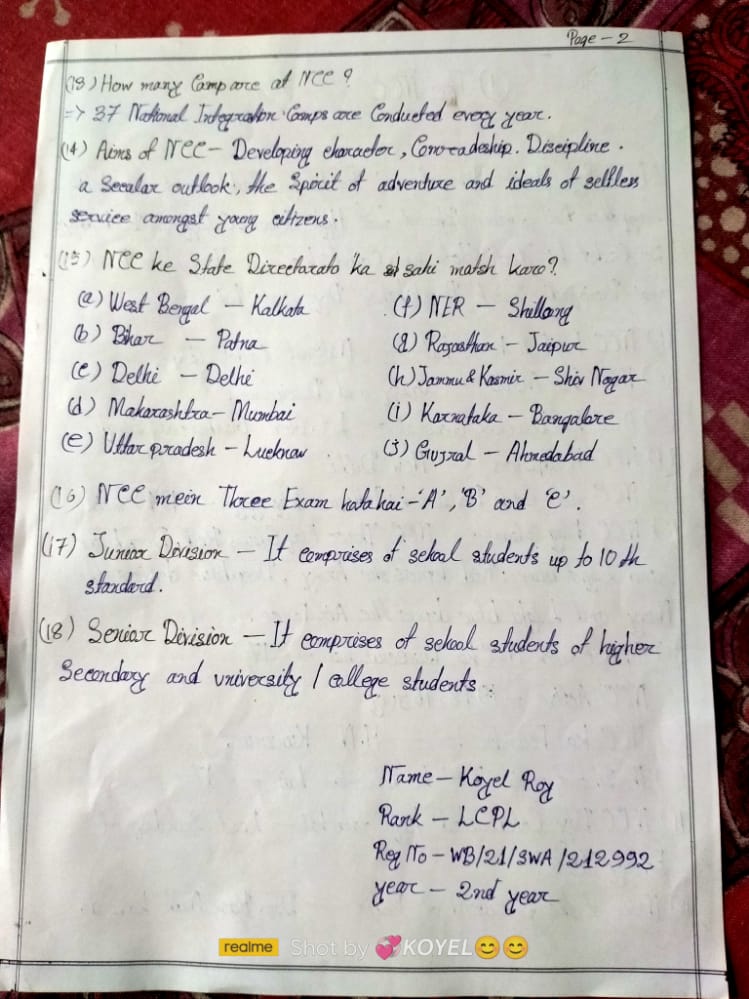 Page - 2
(13) How many Camp are at NCC ?
=> 37 National Integration Camps are Conducted every year.
(14) Aims of NCC - Developing character, Comradeship. Discipline.
a Secular outlook, the Spirit of adventure and ideals of selfless
service amongst young citizens.
(15) NCC ke State Directarato ka sahi match karo?
(a) West Bengal - Kalkata
(f) NER - Shillong
(b) Bihar - Patna
(g) Rajasthan - Jaipur
(c) Delhi - Delhi
(h) Jammu & Kasmir - Shiv Nagar
(d) Maharashtra - Mumbai
(i) Karnataka - Bangalore
(e) Uttar pradesh - Lucknow
(j) Gujral - Ahmedabad
(16) NCC mein Three Exam hota hai - 'A', 'B' and 'C'.
(17) Junior Division - It comprises of school students up to 10 th
standard.
(18) Senior Division - It comprises of school students of higher
Secondary and university / college students.
Name - Koyel Roy
Rank - LCPL
Reg No - WB/21/SWA/212992
year - 2nd year
realme Shot by 💞KOYEL😊😊